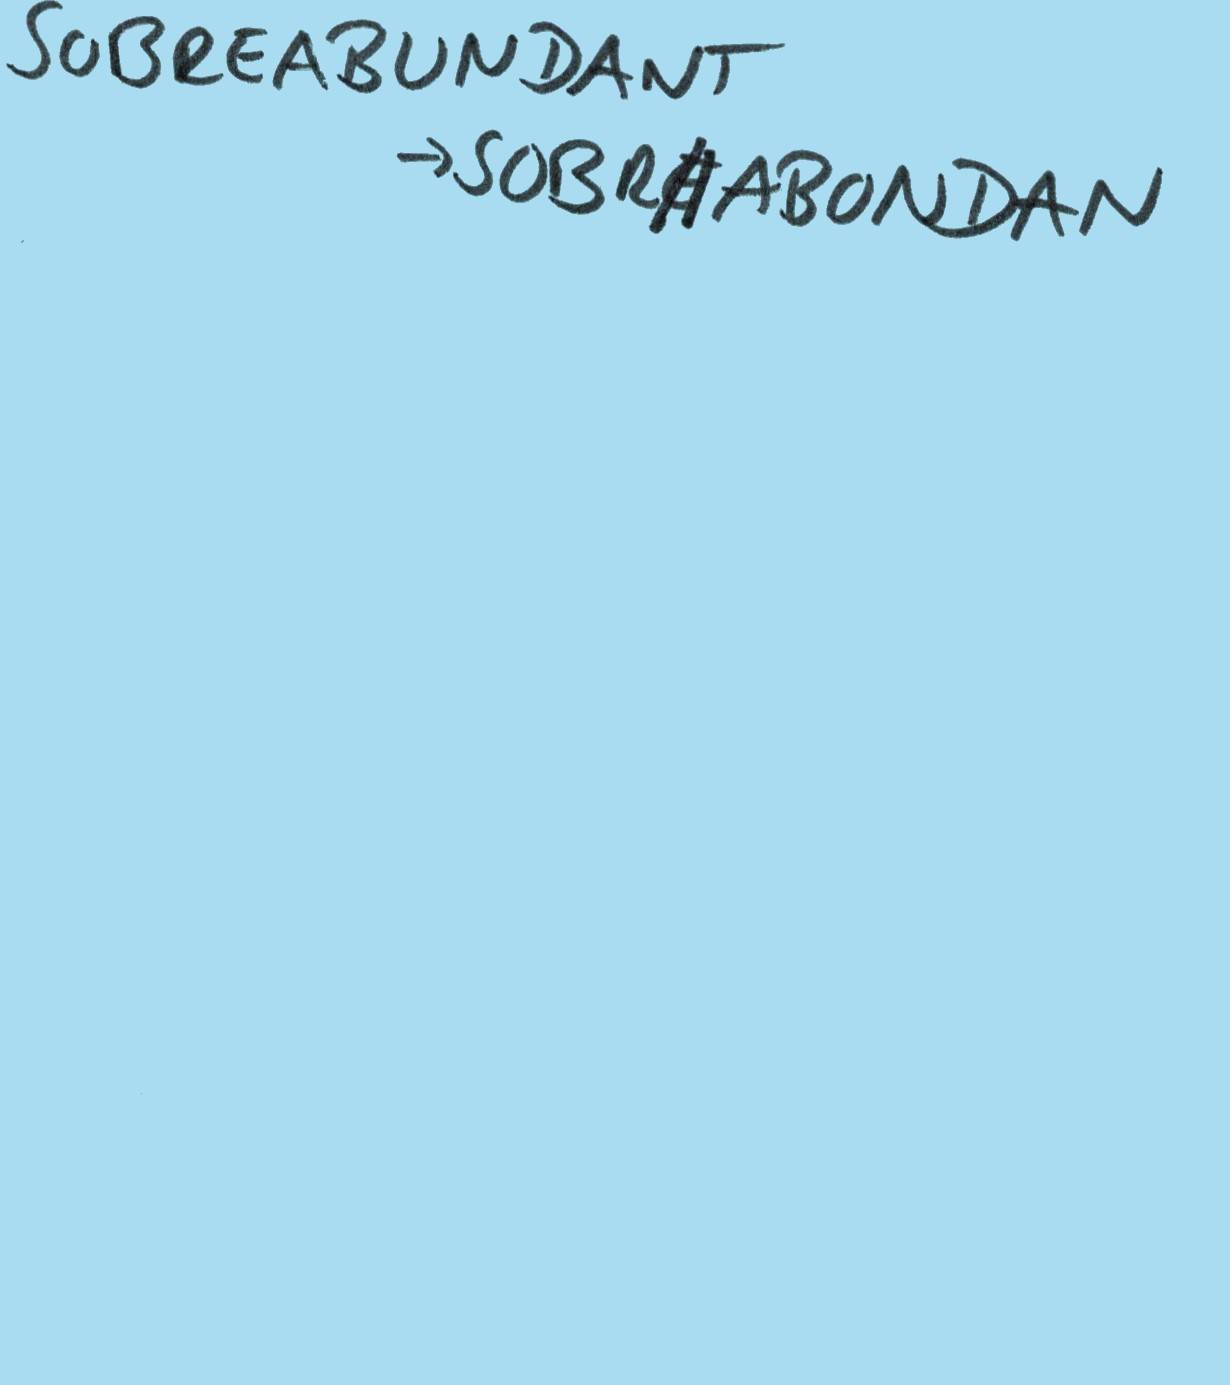 SOBREABUNDANT
→SOBRABONDAN